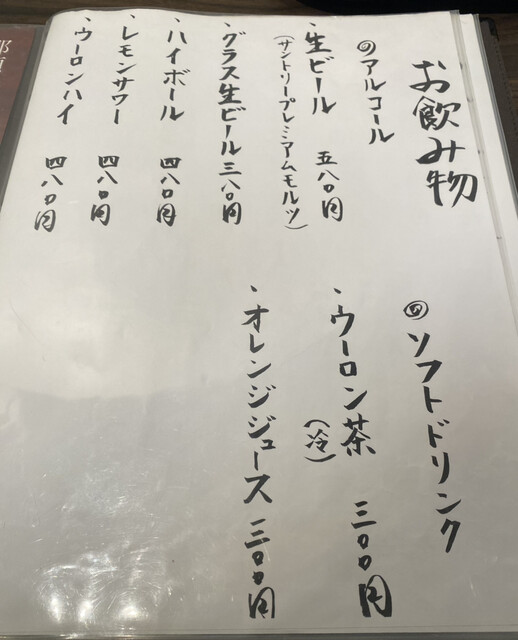 お飲み物
◎アルコール
・生ビール 五八〇円
(サントリープレミアムモルツ)
・グラス生ビール 三八〇円
・ハイボール 四八〇円
・レモンサワー 四八〇円
・ウーロンハイ 四八〇円
◎ソフトドリンク
・ウーロン茶(冷) 三〇〇円
・オレンジジュース 三〇〇円